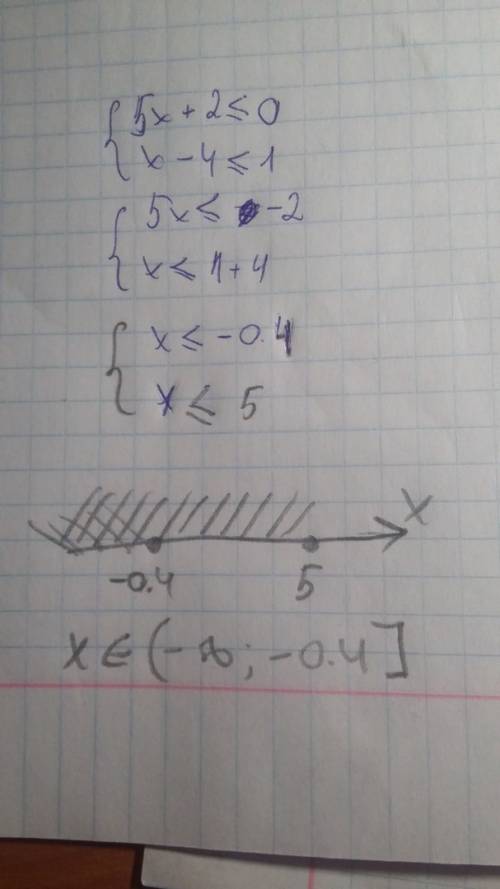 5x + 2 ≤ 0
x - 4 ≤ 1
5x ≤ -2
x ≤ 1 + 4
x ≤ -0.4
x ≤ 5
x
-0.4 5
x ∈ (-∞; -0.4]